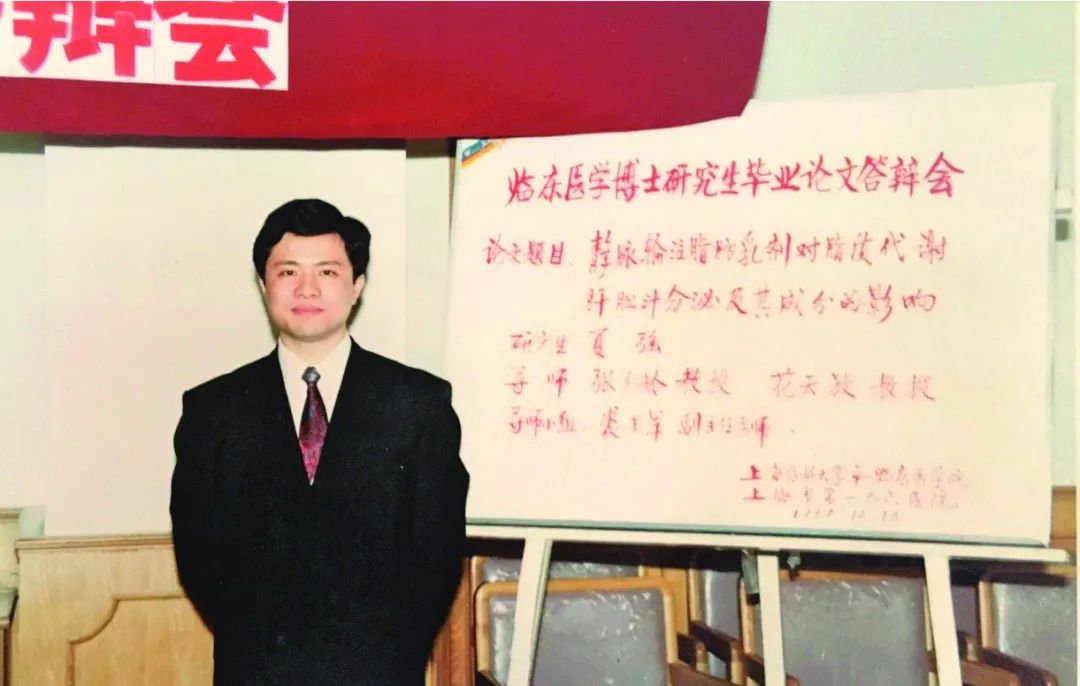 辩会
临床医学博士研究生毕业论文答辩会
论文题目：静脉输注脂肪乳剂对脂质代谢
肝胆汁分泌及其成分的影响
研究生 夏强
导师 张 龄教授 花天放 教授
导师小组：裘正军 副主任医师.
上海医科大学 一临床医学院
上海市第一人民医院